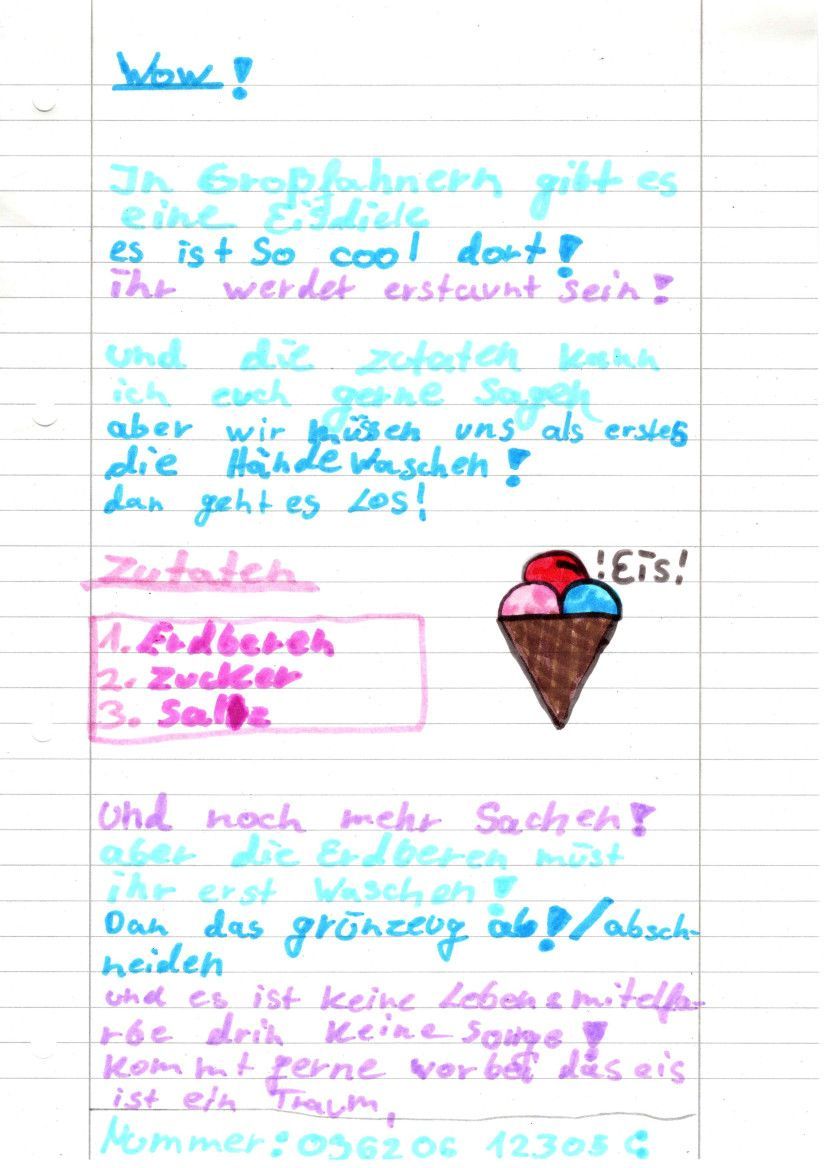 Wow!
In Großfahnern gibt es
eine Eisdiele
es ist so cool dort!
ihr werdet erstaunt sein!
und die zutaten kann
ich euch gerne sagen
aber wir müssen uns als erstes
die Hände waschen!
dan geht es Los!
!Eis!
Zutaten
1. Erdberen
2. zucker
3. Salz
Und noch mehr Sachen!
aber die Erdberen müst
ihr erst waschen!
Dan das grünzeug ab!/absch-
neiden
und es ist keine Lebensmitelfa-
rbe drin keine sorge!
kommt gerne vorbei das eis
ist ein Traum,
Nummer: